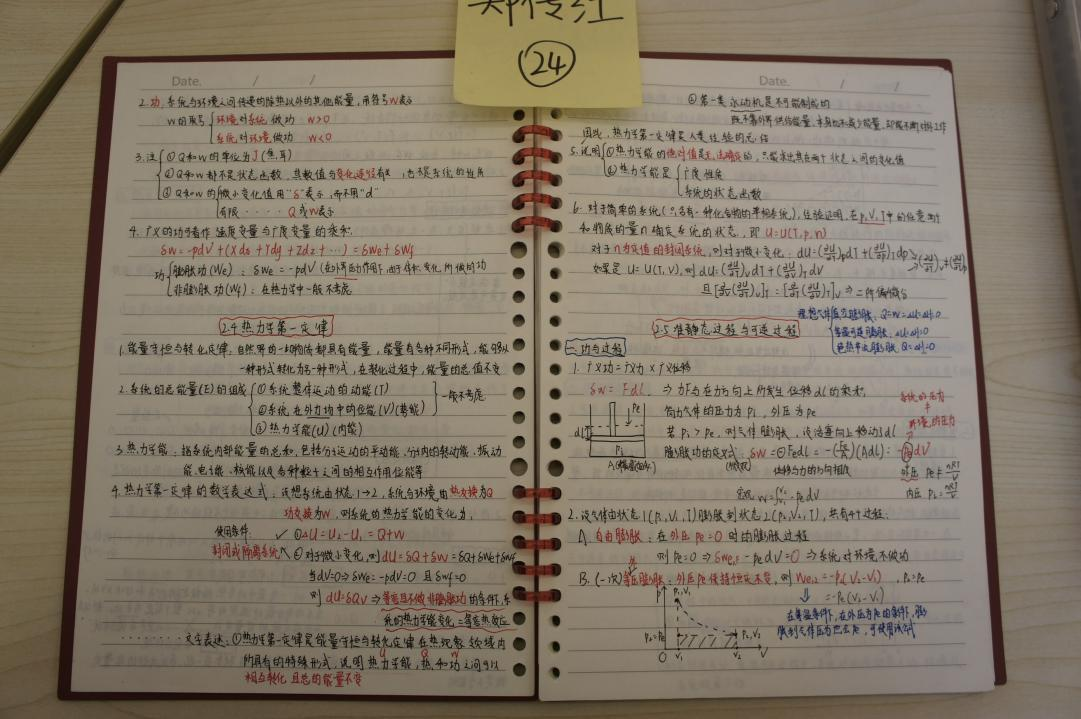 郑传红
24
Date. / /
2. 功：系统与环境之间传递的除热以外的其他能量，用符号W表示
W的取号 环境对系统做功 W>0
系统对环境做功 W<0
3. 注 ①Q和W的单位为J(焦耳)
②Q和W都不是状态函数，其数值与变化途径有关，也不是系统的性质
③Q和W的微小变化值用"δ"表示，而不用"d"
有限 · · · · Q或W表示
4. 广义的功可看作强度变量与广度变量的乘积
δW=-pdV+(Xdx+Ydy+Zdz+…)=δWe+δWf
功 膨胀功(We)：δWe=-pdV(在外压的作用下，由于体积变化所做的功
非膨胀功(Wf)：在热力学中一般不考虑
2.4 热力学第一定律
1. 能量守恒与转化定律：自然界的一切物体都具有能量，能量有各种不同形式，能够从
一种形式转化为另一种形式，在转化过程中，能量的总值不变
2. 系统的总能量(E)的组成 ①系统整体运动的动能(T)
②系统在外力场中的位能(V)(势能) 一般不考虑
③热力学能(U)(内能)
3. 热力学能：指系统内部能量的总和，包括分子运动的平动能、分子内的转动能、振动
能、电子能、核能以及各种粒子之间的相互作用位能等
4. 热力学第一定律的数学表达式：设想系统由状态1→2，系统与环境由热交换为Q
功交换为W，则系统的热力学能的变化为：
使用条件： ①ΔU=U₂-U₁=Q+W
封闭或隔离系统 ②对于微小变化，则dU=δQ+δW=δQ+δWe+δWf
当dV=0⇒δWe=-pdV=0 且δWf=0
则dU=δQv⇒等容且不做非膨胀功的条件，系
统的热力学能变化=等容热效应
· · · · · · · · 文字表述：①热力学第一定律是能量守恒与转化定律在热现象领域内
所具有的特殊形式，说明热力学能，热和功之间可以
U Q W
相互转化且总的能量不变
Date. / /
②第一类永动机是不可能制成的
既不靠外界供给能量，本身也不减少能量，却能不断对外工作
因此，热力学第一定律是人类经验的总结
5. 说明 ①热力学能的绝对值是无法确定的，只能求出其在两个状态之间的变化值
②热力学能是 广度性质
系统的状态函数
6. 对于简单的系统(只含有一种化合物的单相系统)，经验证明，在p,V,T中的任意两个
和物质的量n确定系统的状态，即U=U(T,p,n)
对于n为定值的封闭系统，则对于微小变化：dU=(∂U/∂T)pdT+(∂U/∂p)Tdp → (∂U/∂T)v≠(∂U/∂T)p
如果是U=U(T,V)，则dU=(∂U/∂T)vdT+(∂U/∂V)TdV
且[∂/∂V(∂U/∂T)v]T=[∂/∂T(∂U/∂V)T]v⇒二阶偏微分
理想气体真空膨胀：Q=W=ΔU=ΔH=0
等温可逆膨胀：ΔU=ΔH=0
2.5 准静态过程与可逆过程
一、功与过程
1. 广义功=广义力×广义位移
δW=Fdl ⇒力F与在力方向上所发生位移dl的乘积
筒内气体的压力为pi，外压为pe
若pi>pe，则气体膨胀，设活塞向上移动了dl
膨胀功的定义式：δW=⊖Fedl=-(Fe/A)(Adl)=-pedV
位移与力的方向相反
系统的压力
≠
环境的压力
外压 pe≠nRT/V
内压 pi=nRT/V
dl
pe
pi
宏观W=∫-pedV
2. 设气体由状态1(p₁,V₁,T)膨胀到状态2(p₂,V₂,T)，共有4个过程：
A. 自由膨胀：在外压pe=0时的膨胀过程
则pe=0⇒δWe,₁=-pedV=0⇒系统对环境不做功
B. (一次)等压膨胀：外压pe保持恒定不变，则We,₂=-pe(V₂-V₁)，p₂=pe
=-pe(V₂-V₁)
p
p₁,V₁
p₂=pe
p₂,V₂
O V₁ V₂ V